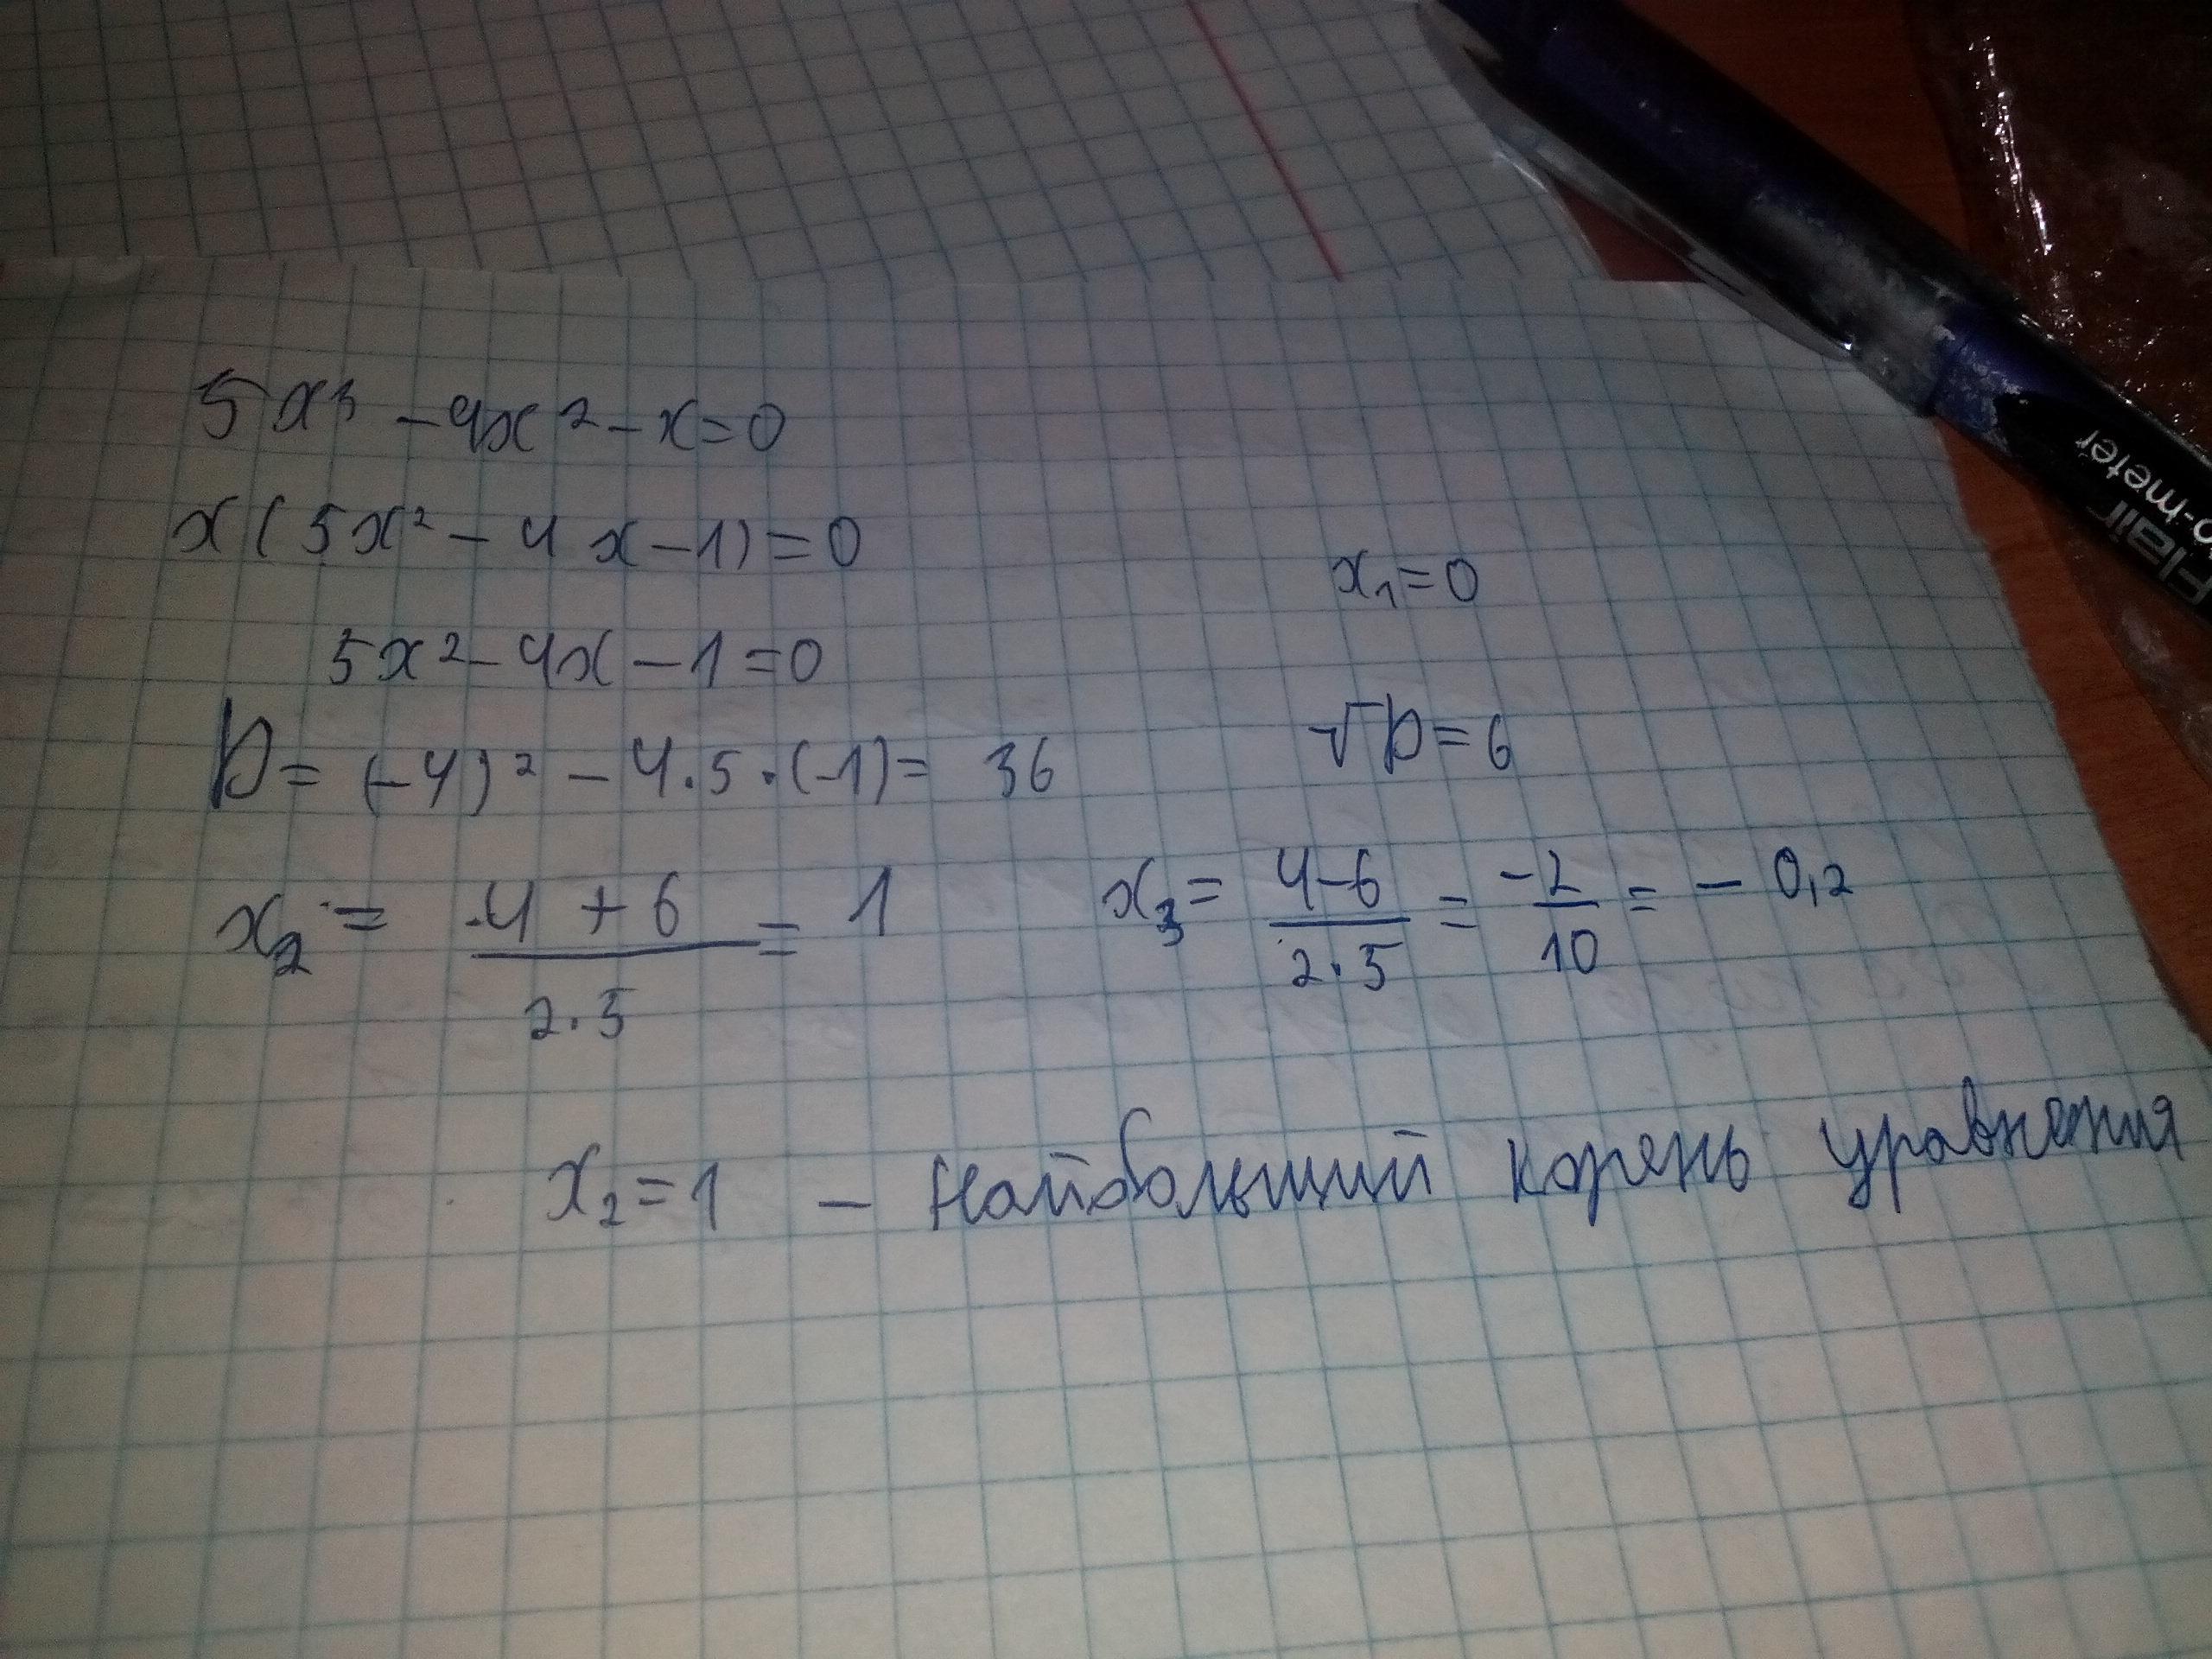 5x³ - 4x² - x = 0
x(5x² - 4x - 1) = 0
x₁ = 0
5x² - 4x - 1 = 0
D = (-4)² - 4·5·(-1) = 36
√D = 6
x₂ = -4 + 6 / 2·5 = 1
x₃ = 4-6 / 2·5 = -2 / 10 = - 0,2
x₂ = 1 - Наибольший корень уравнения
Flair
o-meter